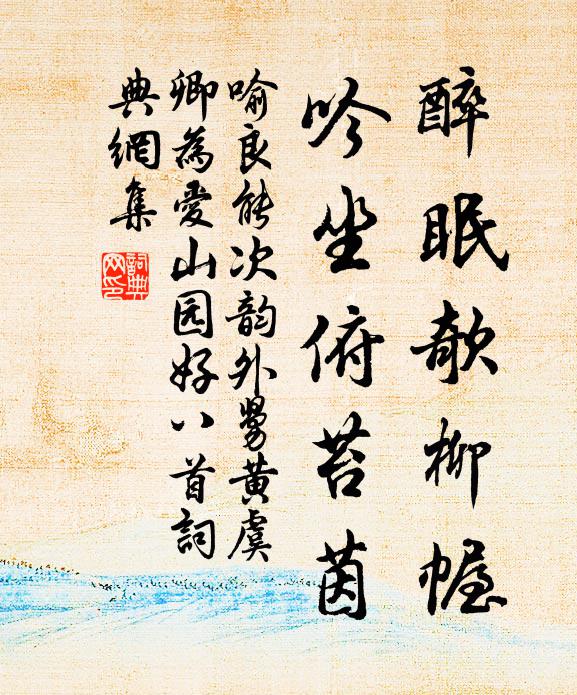 醉眠欹柳幄
吟坐俯苔茵
喻良能次韵外舅黄虞
卿為愛山园好八首詞
典網集
詞典
网印